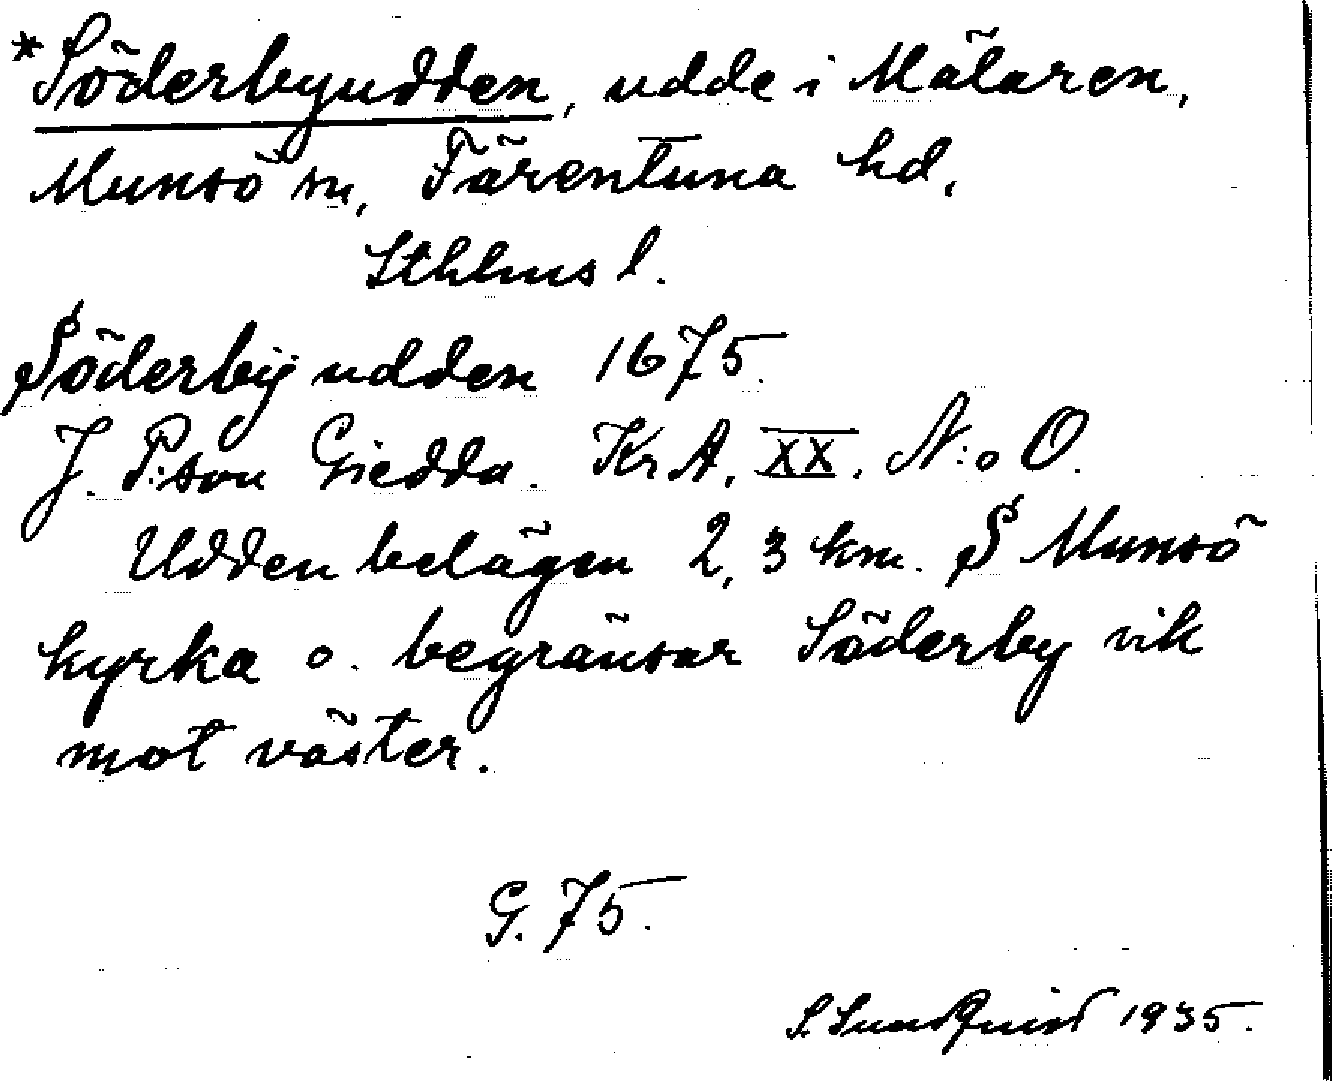 *Söderbyudden, udde i Mälaren,
Munsö sn, Färentuna hd,
Sthlms l.
Söderbÿ udden 1675.
J. P:son Giedda. Kr A. XX. N:o O.
Udden belägen 2,3 km. S Munsö
kyrka o. begränsar Söderby vik
mot väster.
G. 75.
S. Sundquist 1935.